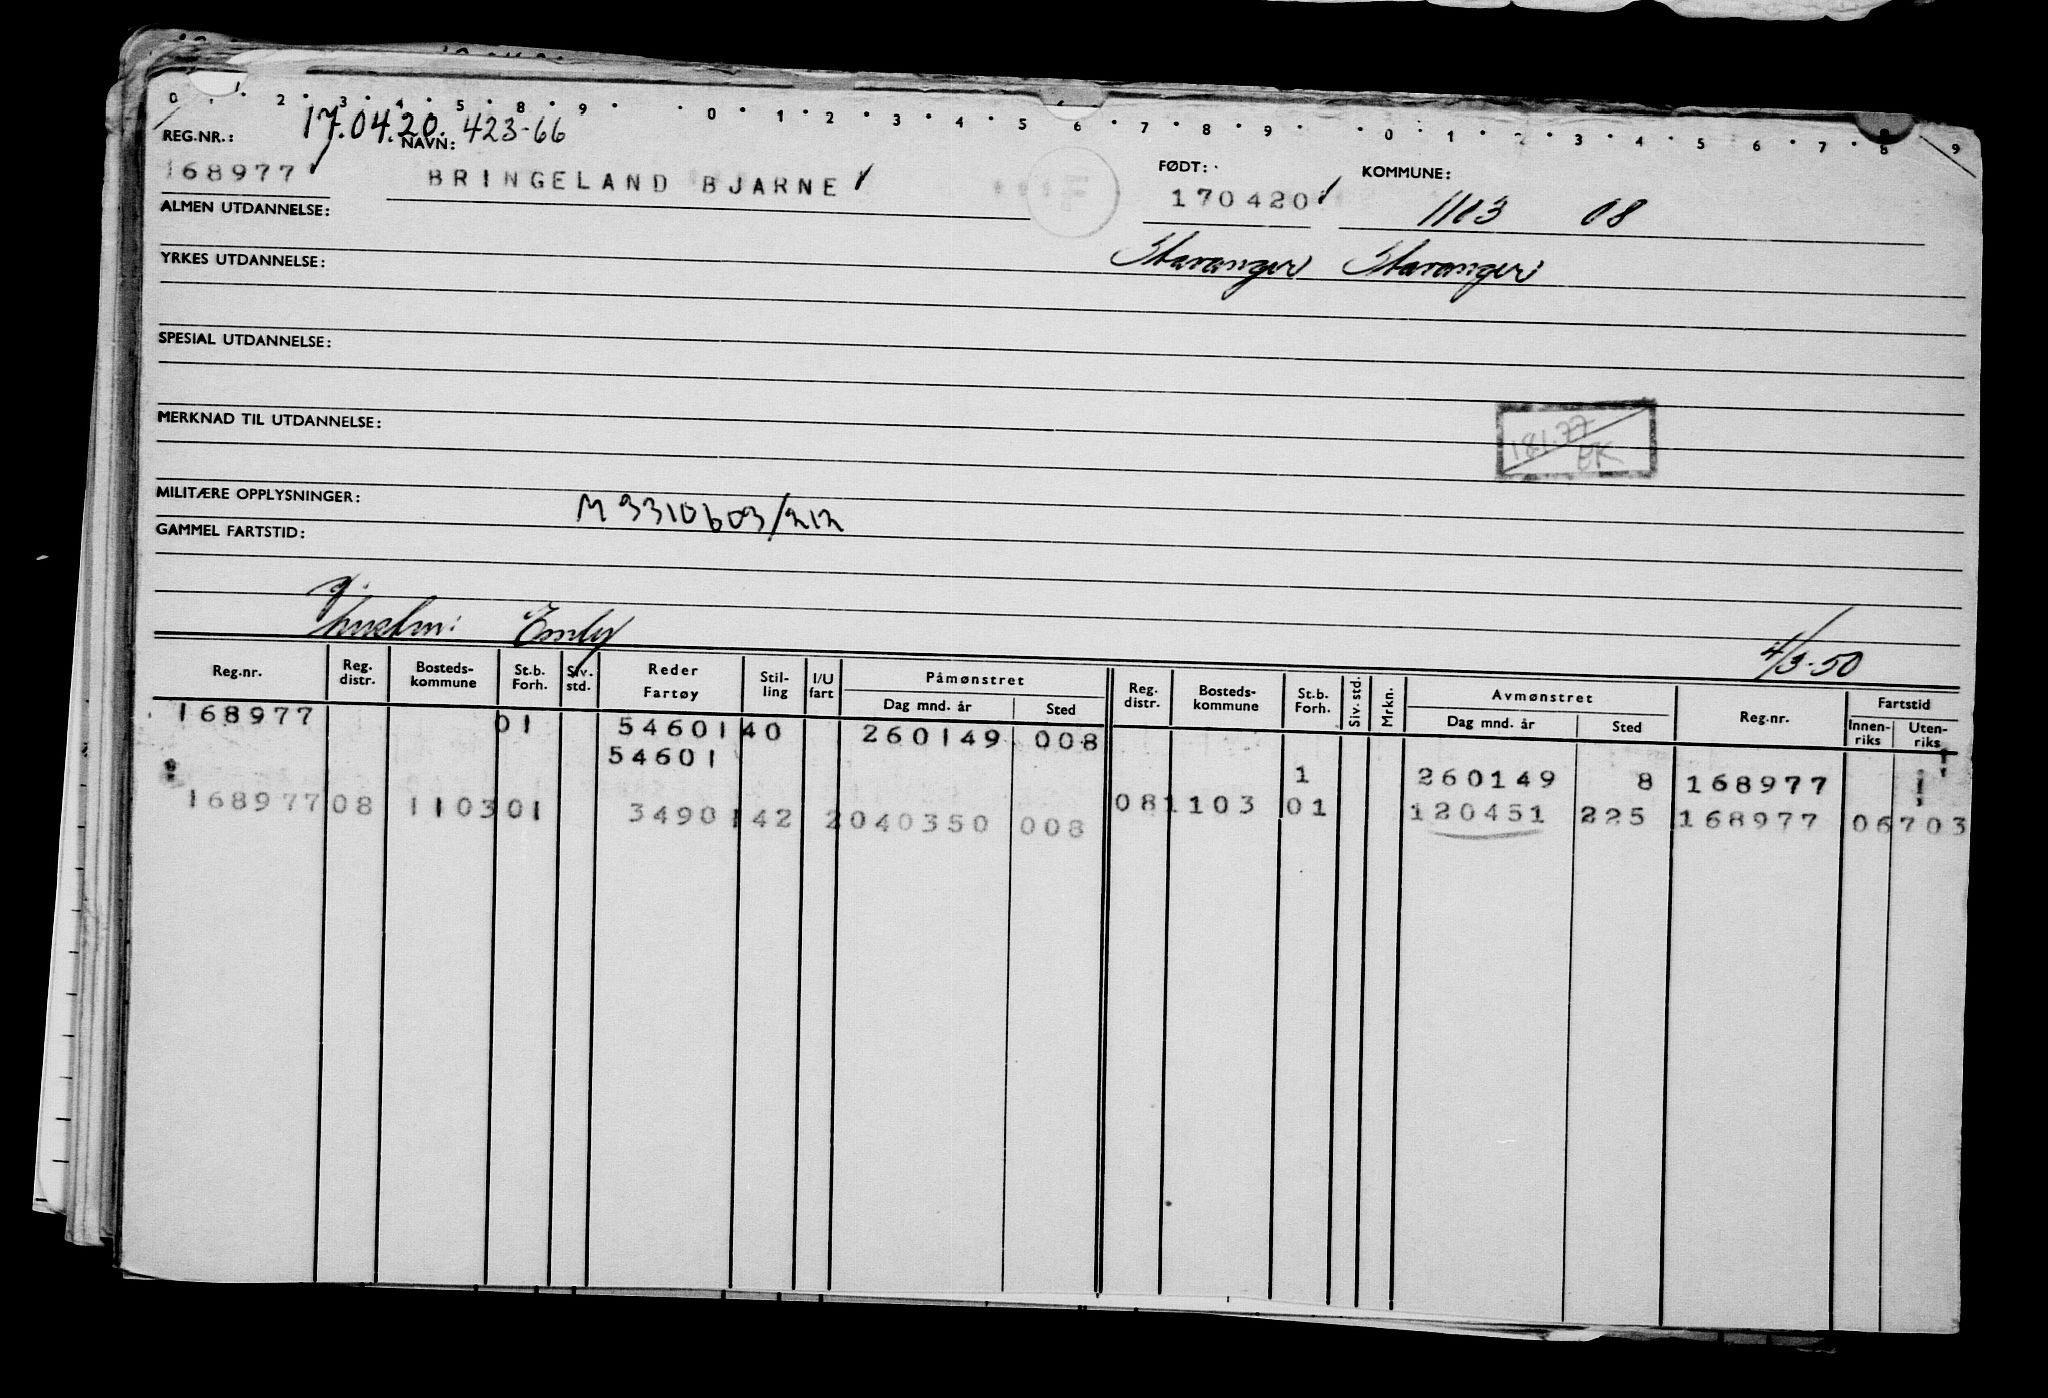 0 1 2 3 4 5 8 9 0 1 2 3 4 5 6 7 8 9 0 1 2 3 4 5 6 7 8 9
17.04.20. 423-66
REG.NR.: NAVN: FØDT: KOMMUNE:
168977 BRINGELAND BJARNE 170420 1103 08
ALMEN UTDANNELSE:
Stavanger Stavanger
YRKES UTDANNELSE:
SPESIAL UTDANNELSE:
MERKNAD TIL UTDANNELSE:
EK
MILITÆRE OPPLYSNINGER: M 3310603/212
GAMMEL FARTSTID:
Emly 4/3-50
Reg.nr. Reg. distr. Bosteds-kommune St.b. Forh. Siv. std. Reder Fartøy Stil-ling I/U fart Påmønstret Dag mnd. år Sted Reg. distr. Bosteds-kommune St.b. Forh. Siv. std. Mrkn. Avmønstret Dag mnd. år Sted Reg.nr. Fartstid Innen-riks Uten-riks
168977 01 54601 40 260149 008
54601 1 260149 8 168977 1
168977 08 1103 01 34901 42 2 040350 008 08 1103 01 120451 225 168977 06703